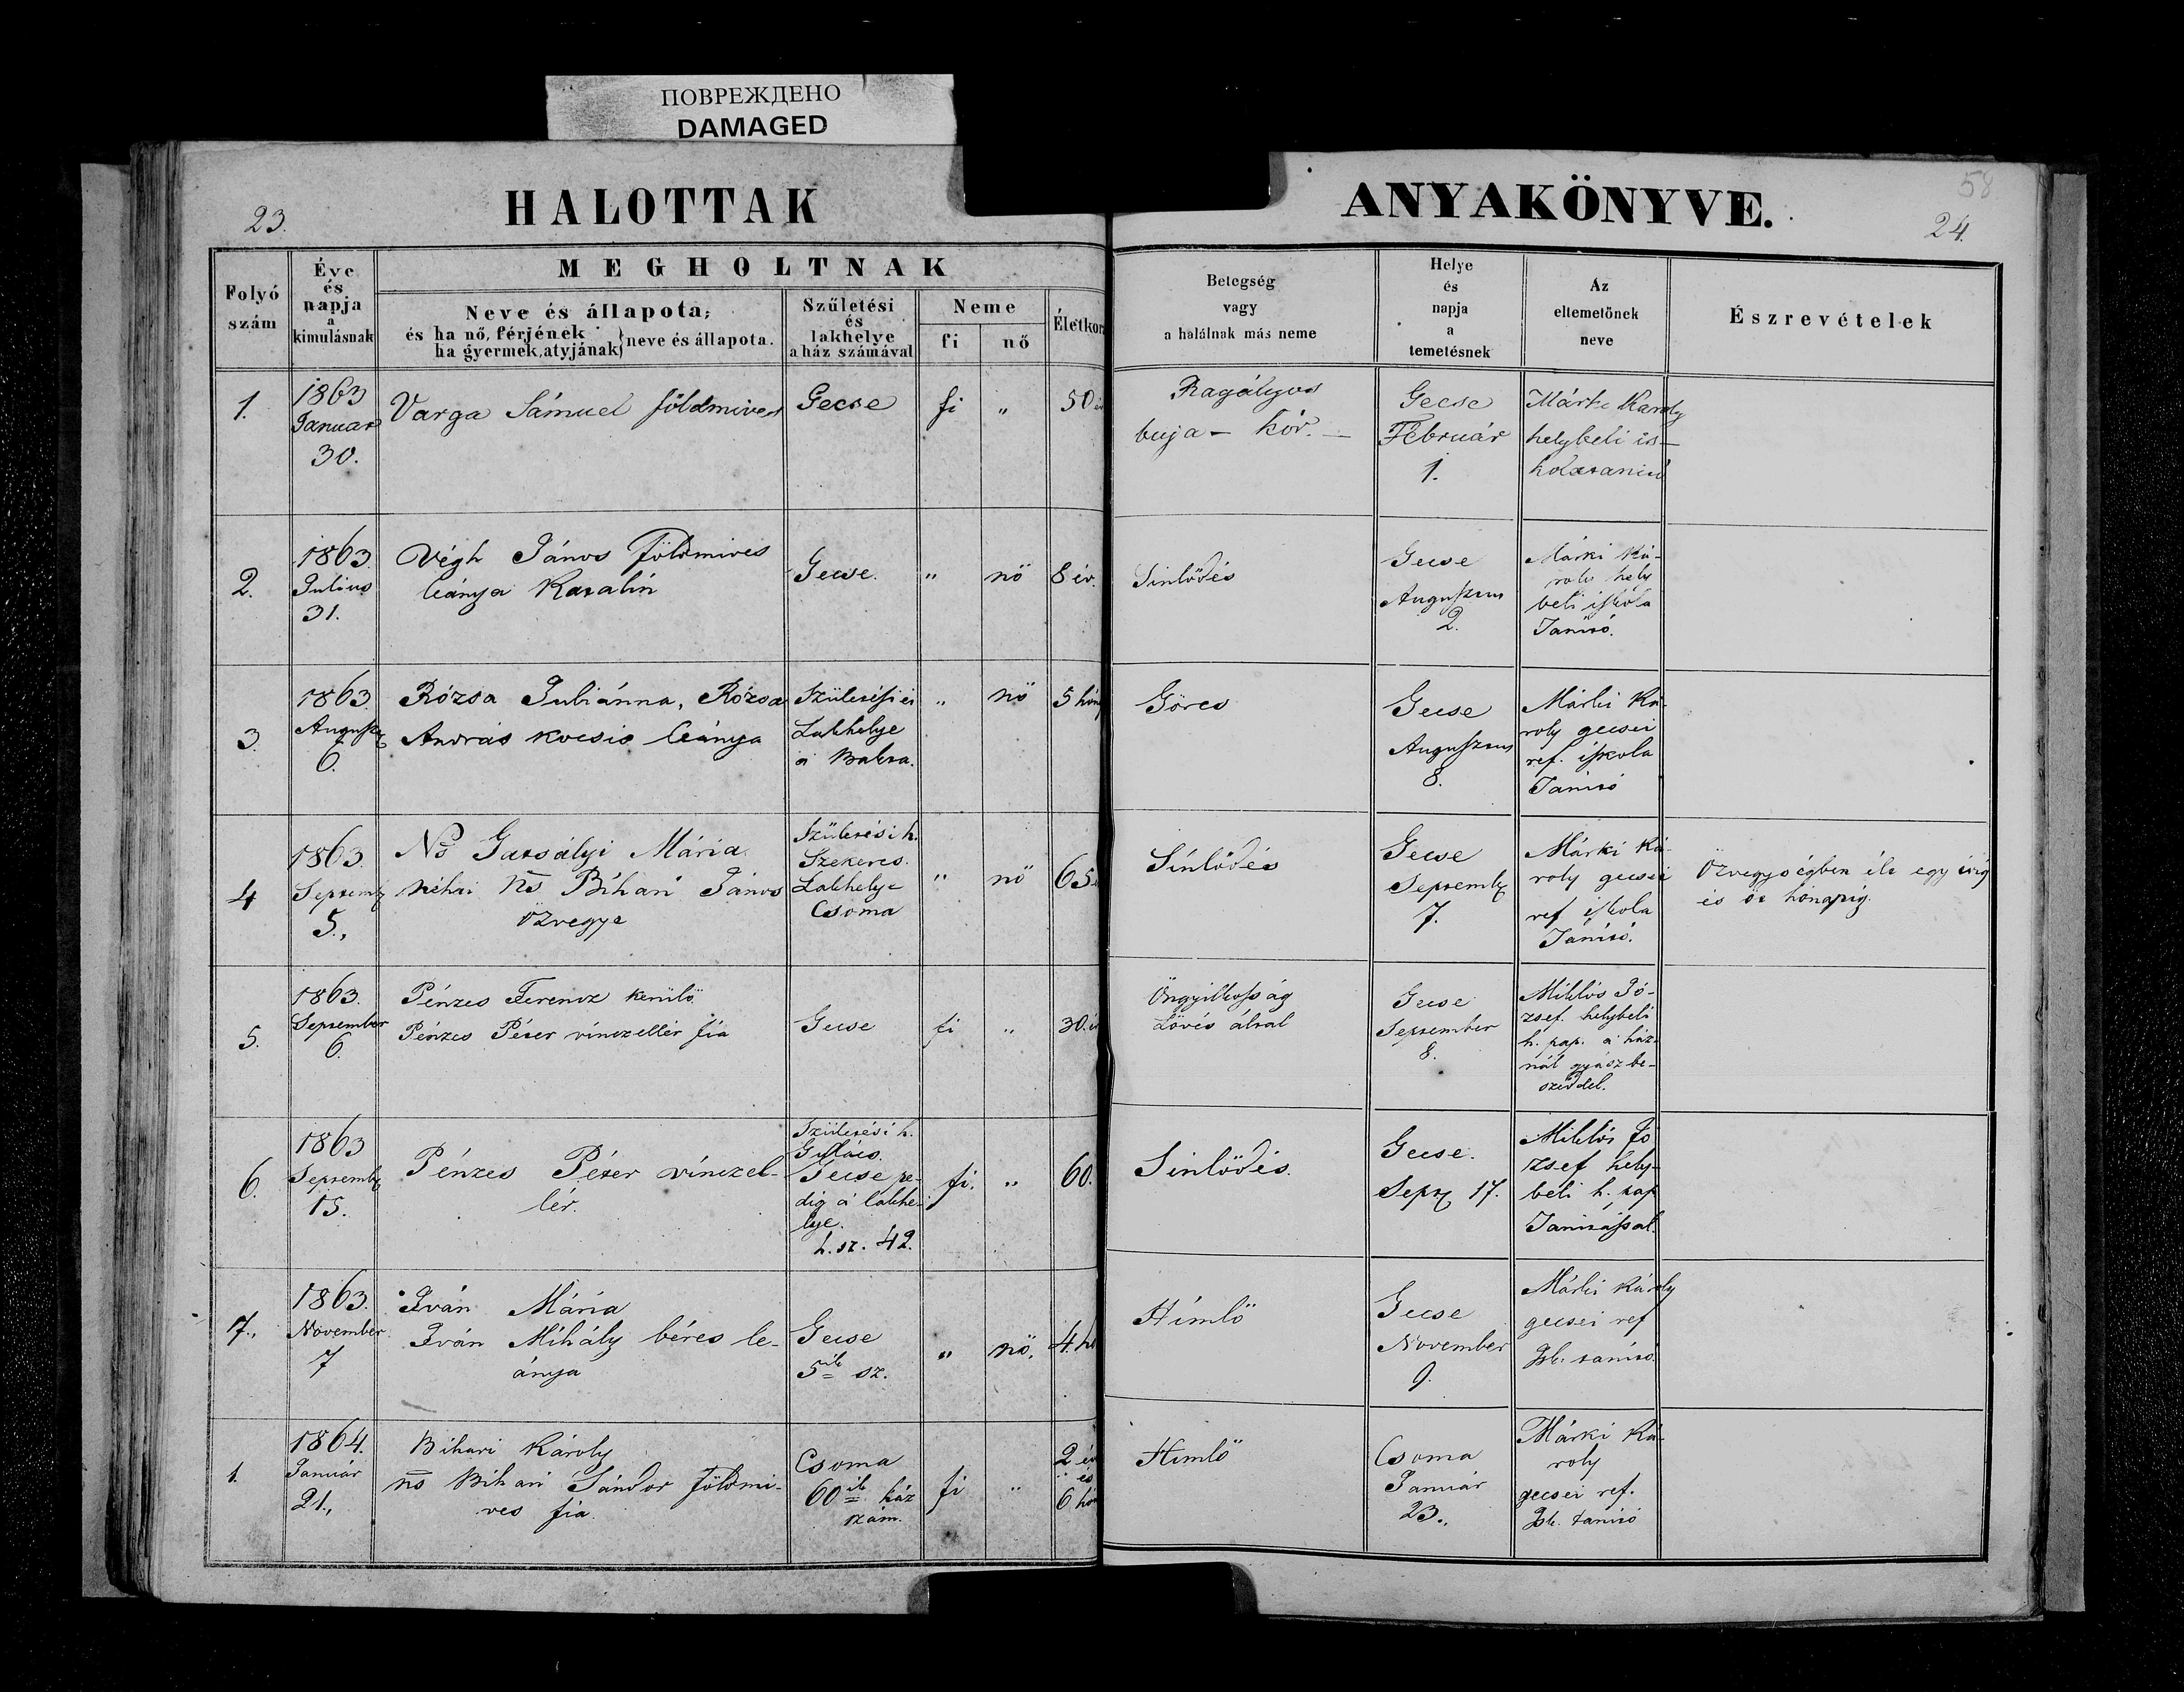 ПОВРЕЖДЕНО
DAMAGED
23.
HALOTTAK
ANYAKÖNYVE.
58
24.
Folyó
szám
Éve
és
napja
a
kimulásnak
MEGHOLTNAK
Neve és állapota;
és ha nő, férjének
ha gyermek, atyjának} neve és állapota.
Születési
és
lakhelye
a ház számával
Neme
fi
nő
Életkora
Betegség
vagy
a halálnak más neme
Helye
és
napja
a
temetésnek
Az
eltemetőnek
neve
Észrevételek
1.
1863
Januar
30.
Varga Sámuel földmives
Gecse
fi
"
50 év
Ragályos
buja - kór. -
Gecse
Február
1.
Márki Karoly
helybeli is-
kolatanitó
2.
1863.
Julius
31.
Végh János földmives
leánya Katalin
Gecse.
"
nő
8 év.
Sinlődés
Gecse
Augusztus
2.
Márki Ká-
roly hely
beli iskola
Tanitó.
3.
1863.
Auguszt
6.
Rózsa Juliánna, Rózsa
András kocsis leánya
Születési és
Lakhelye
a Baksa.
"
nő
5 hóna
Görcs
Gecse
Augusztus
8.
Márki Ká-
roly gecsei
ref. iskola
Tanitó
4
1863.
Septemb
5.,
Ns Gatsályi Mária
néhai Ns Bihari János
özvegye
Születési h.
Szekeres.
Lakhelye
Csoma
"
nő
65.
Sinlődés
Gecse
Septemb
7.
Márki Ká-
roly gecsei
ref iskola
Tanitó.
Özvegységben élt egy évig
és öt hónapig.
5.
1863.
September
6.
Pénzes Ferencz kerülő
Pénzes Péter vinczellér fia
Gecse
fi
"
30. év
Öngyilkosság
Lövés által
Gecse
September
8.
Miklós Jó-
zsef. helybeli
h. pap. a ház-
nál gyászbe-
széddel.
6.
1863
Septemb
15.
Pénzes Péter vinczel-
lér.
Születési h.
Gecse pe-
dig a lakhe-
lye.
h. sz. 42.
fi.
"
60.
Sinlődés.
Gecse.
Sept 17.
Miklós Jó
zsef hely-
beli h. pap
Tanitással.
7.,
1863.
November
7
Iván Mária
Iván Mihály béres le-
ánya
Gecse
5ik sz.
"
nő.
4. hó
Himlő
Gecse
November
9.
Márki Károly
gecsei ref
Isk. tanitó.
1.
1864.
Január
21.,
Bihari Károly
ns Bihari Sándor földmi-
ves fia.
Csoma
60ik ház
szám.
fi
"
2 év
és
6 hón
Himlő
Csoma
Január
23.,
Márki Ká-
roly
gecsei ref.
Isk. tanitó